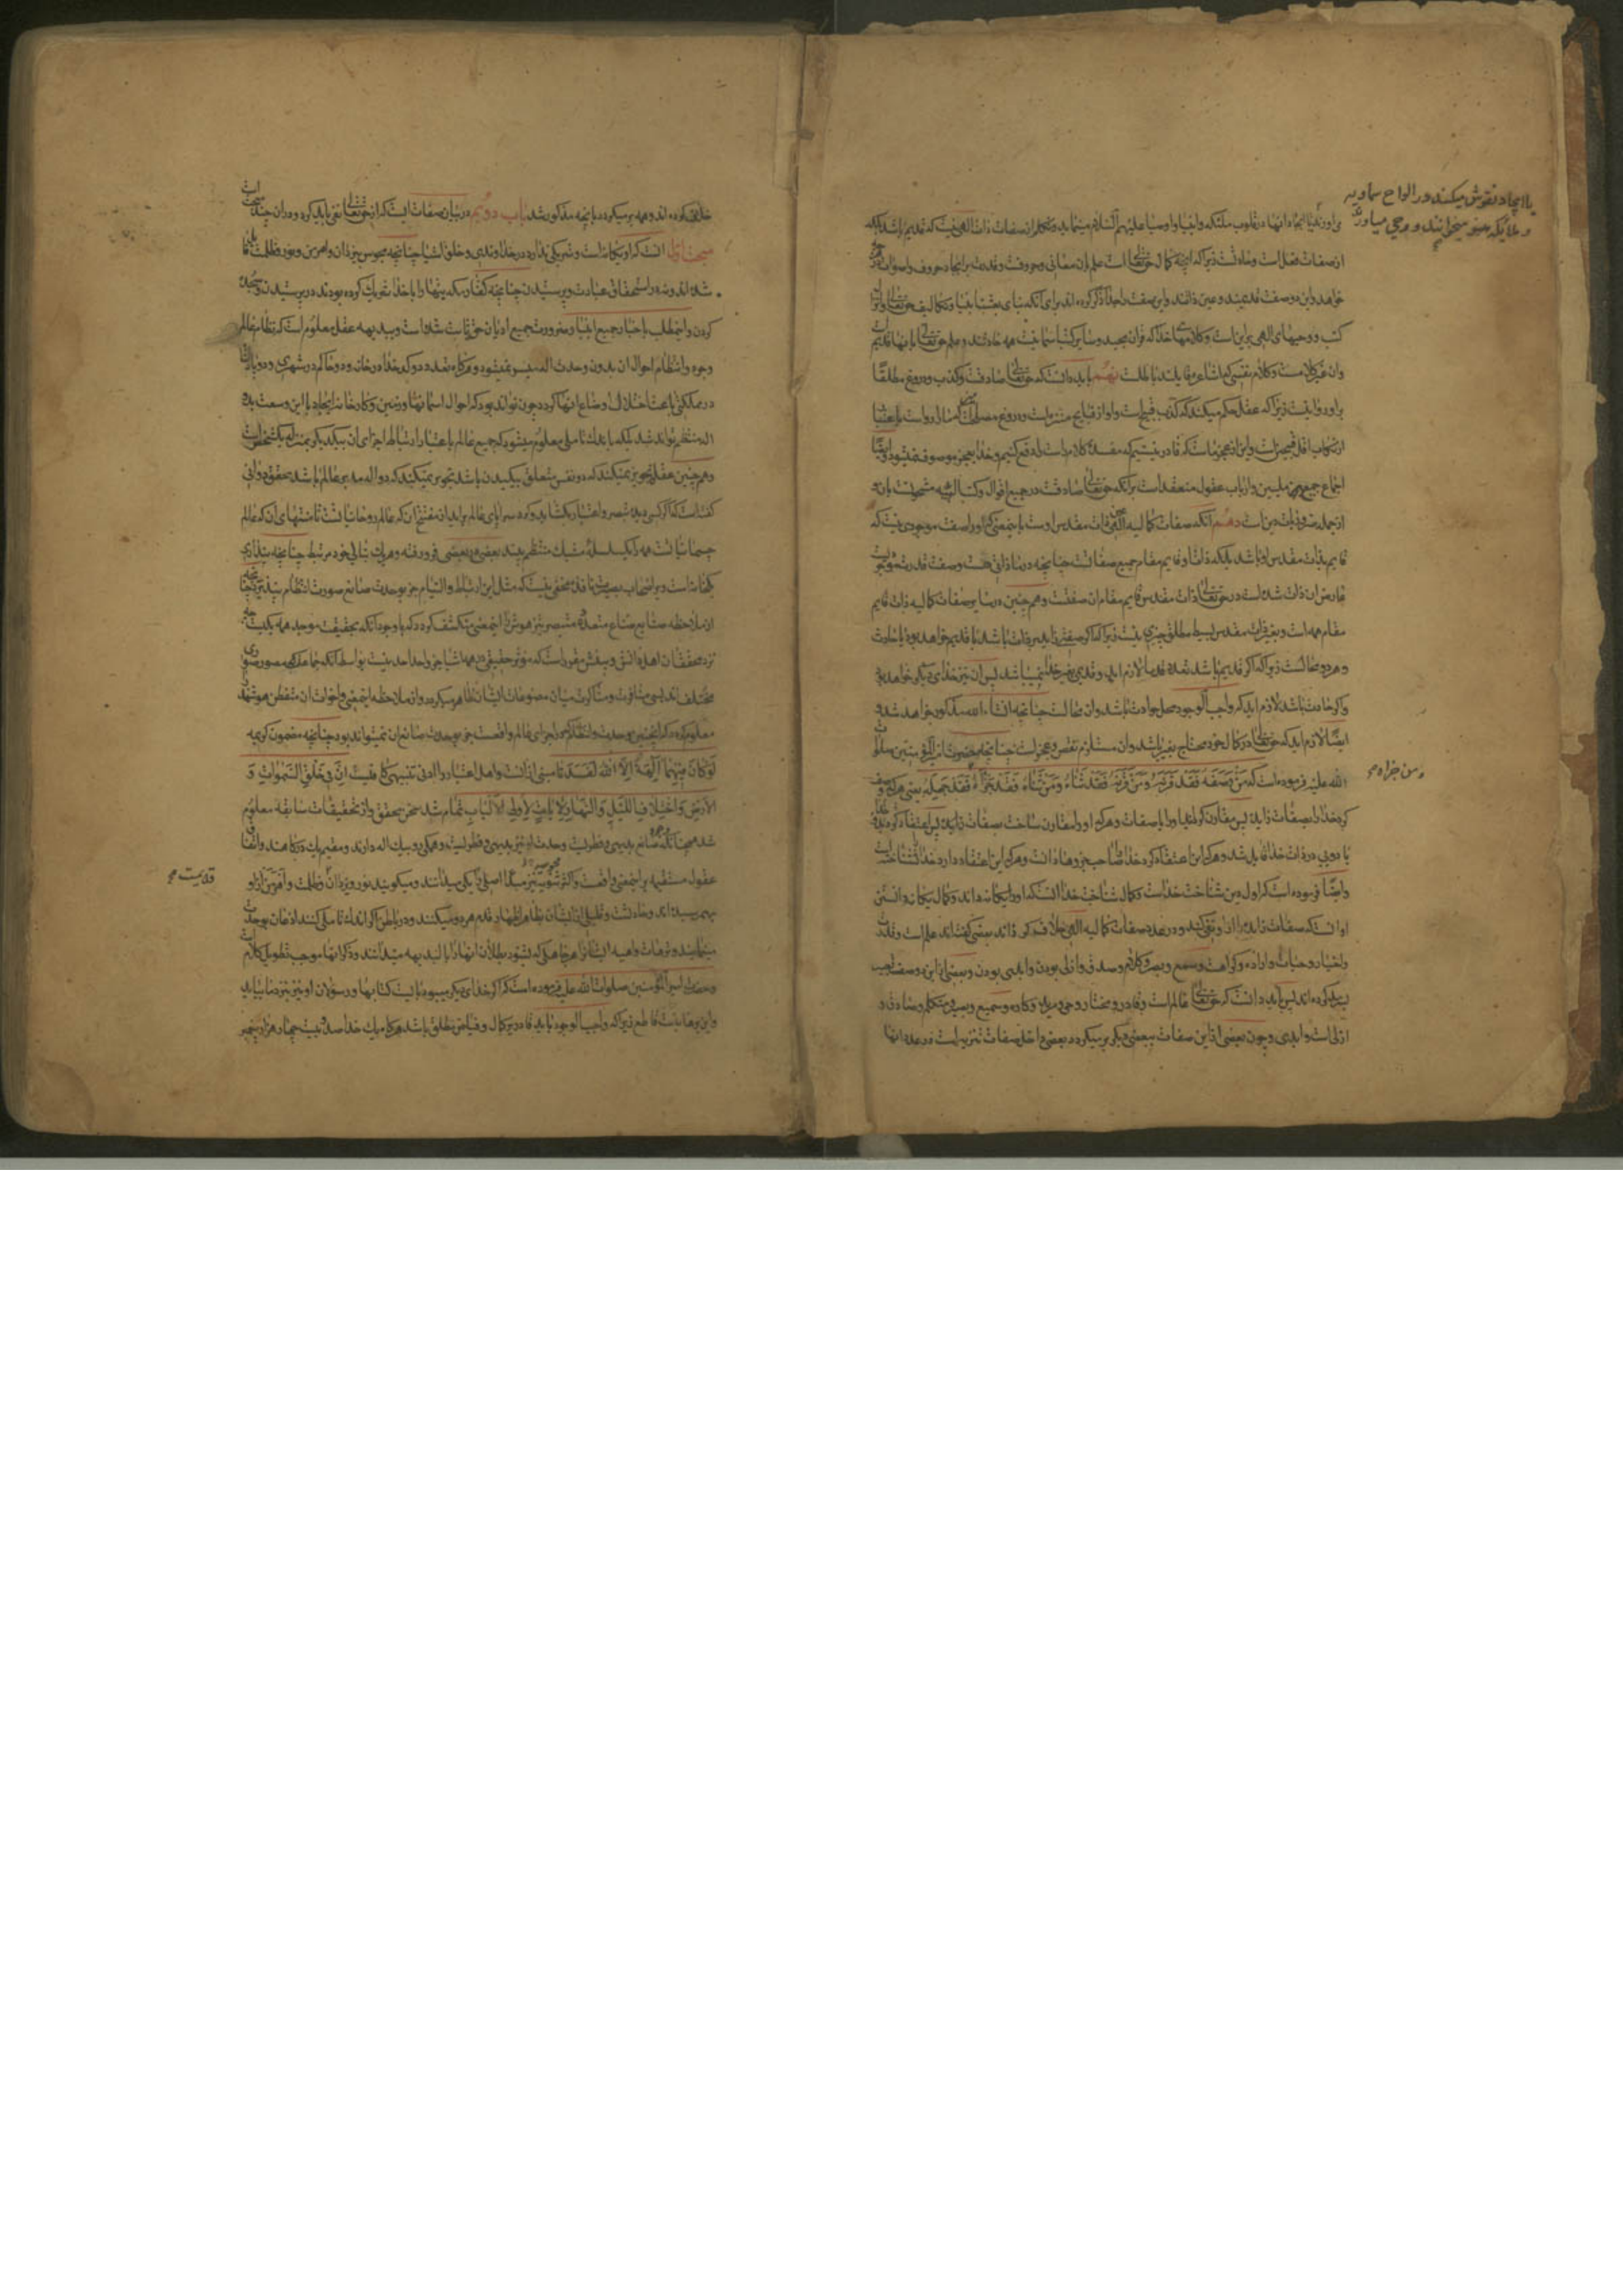 یا ایجاد نقوش میکند در الواح سماویه
و ملائکه میخوانند و وحی میاورند
می‌اورند یا ایجاد انها در قلوب ملئکه و انبیا و اوصیا علیهم السلام مینماید و متکلم از صفات ذات الهی نیست که قدیم باشد بلکه
از صفات فعل است و حادثست زیرا که انچه کمال حق تعالی است علم بان معانی و حروفست و قدرت بر ایجاد حروف و اصوات در هر چه
خواهد و این دو صفت قدیمند و عین ذاتند و این صفت را جدا ذکر کرده‌اند برای انکه بنای بعثت انبیا و تکالیف حق تعالی و انزال
کتب و وحیهای الهی بر اینست و کلامهای خدا که قران مجید و سایر کتب سماویست همه حادثند و علم حق تعالی بانها قدیم است
وان غیر کلامست و کلام نفسی که اشاعره قایلند باطلست نهم باید دانست که حق تعالی صادقست و کذب و دروغ مطلقا
بر او روا نیست زیرا که عقل حکم میکند که کذب قبیح است و او از قبایح منزه است و دروغ مصلحت امیز که ما را رواست باعتبار
ارتکاب اقل قبیحین است و این از عجز ماست که قادر نیستیم که مفسده کلام راست را دفع کنیم و خدا بعجز موصوف نمیشود و ایضا
اجماع جمیع ملیین و ارباب عقول منعقد است بر انکه حق تعالی صادقست در جمیع اقوال و کتب الهیه مشحونست بان و
از جمله ضروریات دین است دهم انکه صفات کمالیه الهی ذات مقدس اوست باین معنی که او را صفت موجودی نیست که
قایم بذات مقدس او باشد بلکه ذات او قایم مقام جمیع صفاتست چنانچه در ما ذاتی هست و صفت قدرت موجودیست
عارض ان ذات شده است در حق تعالی ذات مقدس قایم مقام ان صفتست و همچنین در سایر صفات کمالیه ذات قایم
مقام همه است و بغیر ذات مقدس بسیط مطلق چیزی نیست زیرا که اگر صفتی زاید بر ذات باشد یا قدیم خواهد بود یا حادث
و هر دو محالست زیرا که اگر قدیم باشد تعدد قدما لازم اید و قدیمی بغیر خدا نمیباشد پس ان نیز خدای دیگر خواهد بود
و اگر حادث باشد لازم اید که واجب الوجود محل حوادث باشد و ان محالست چنانچه انشاءالله مذکور خواهد شد و
ایضا لازم اید که حق تعالی در کمال خود محتاج بغیر باشد و ان مستلزم نقص و عجز است چنانچه حضرت امیر المؤمنین صلوات
الله علیه فرموده است که مَنْ وَصَفَهُ فَقَدْ قَرَنَهُ وَمَنْ قَرَنَهُ فَقَدْ ثَنَّاهُ وَمَنْ ثَنَّاهُ فَقَدْ جَزَّأَهُ فَقَدْ جَهِلَهُ یعنی هرکه وصف
و من جزاه صح
کرد خدا را بصفات زایده پس مقارن گردانید او را با صفات و هرکه او را مقارن ساخت بصفات زایده پس اعتقاد کرد
با دویی در ذات خدا قایل شد و هرکه این اعتقاد کرد خدا را صاحب جزو ها دانست و هرکه این اعتقاد دارد خدا را نشناخته است
و ایضا فرموده است که اول دین شناخت خداست و کمال شناخت خدا انست که او را یگانه داند و کمال یگانه دانستن
او انست که صفات زایده را از او نفی کند و در عدد صفات کمالیه الهی خلاف کرده‌اند بعضی گفته‌اند علم است و قدرت
و اختیار و حیات و اراده و کراهت و سمع و بصر و کلام و صدق و ازلی بودن و ابدی بودن و بعضی
کرده‌اند پس باید دانست که حق تعالی عالم است و قادر و مختار و حی و مرید و کاره و سمیع و بصیر و متکلم و صادق و
ازلی است و ابدی و چون بعضی از این صفات ببعضی دیگر برمیگردد و بعضی داخل صفات تنزیه است در عدد انها
خلاف کرده‌اند و همه برمیگردد بانچه مذکور شد باب دویم در بیان صفاتیست که از حق تعالی نفی باید کرد و دران چند مبحث است
مبحث اول انست که او یگانه است و شریکی ندارد نه در خداوندی و خلق اشیا چنانچه مجوس بیزدان و اهرمن و نور و ظلمت قایل
شده‌اند و نه در استحقاق عبادت و پرستیدن چنانچه کفار مکه بتها را با خدا شریک کرده بودند در پرستیدن و سجده
کردن و این مطلب باخبار جمیع انبیا و ضرورت جمیع ادیان حق ثابت شده است و ببدیهه عقل معلوم است که نظام عالم
وجود و انتظام احوال ان بدون وحدت اله میسر نمیشود و هرگاه تعدد دو کدخدا در خانه و دو حاکم در شهری و دو پادشاه
در مملکتی باعث اختلال اوضاع انها گردد چون تواند بود که احوال اسمانها و زمین و کارخانه ایجاد با این وسعت بدو
اله منتظم تواند شد بلکه باندک تاملی معلوم میشود که جمیع عالم باعتبار ارتباط اجزای ان بیکدیگر بمنزله یک شخص است
و همچنین عقل تجویز نمیکند که دو نفس متعلق بیک بدن باشد تجویز نمیکند که دو اله مدبر عالم باشد محقق دوانی
گفته است که اگر کسی دیده تبصر و اعتبار بگشاید و گرد سراپای عالم براید از مفتتح ان که عالم روحانیاتست تا منتهای ان که عالم
جسمانیاتست همه را یک سلسله مشبک منتظم بیند بعضی در بعضی فرو رفته و هر یک بتالی خود مرتبط چنانچه پنداری
یکخانه است و بر اصحاب بصیرت نافذه مخفی نیست که مثل این ارتباط و التیام جز بوحدت صانع صورت انتظام نپذیرد چنانچه
از ملاحظه صنایع صناع متعدده متبصر تیز هوش را این معنی منکشف گردد که باوجود انکه بحقیقت موجد همه یکیست
نزد محققان اهل ذوق و بینش مقرر است که مؤثر حقیقی در همه اشیا جز واحد احد نیست بواسطه انکه
مختلف‌اند بسی منافرت و مناکرت میان مصنوعات ایشان ظاهر میگردد و از ملاحظه این معنی و اخوات ان متفطن هوشمند
معلوم کرده که این چنین وحدت و انتظام که در اجزای عالم واقعست جز بوحدت صانع ان نمیتواند بود چنانچه مضمون کریمه
لَوْ كَانَ فِيهِمَا آلِهَةٌ إِلَّا اللَّهُ لَفَسَدَتَا مبنی از انست و اهل اعتبار را ادنی تنبیهی کافیست إِنَّ فِي خَلْقِ السَّمَوَاتِ وَ
الْأَرْضِ وَاخْتِلَافِ اللَّيْلِ وَالنَّهَارِ لَآيَاتٍ لِأُولِي الْأَلْبَابِ تمام شد سخن محقق و از تحقیقات سابقه معلوم
شد همچنانکه وجود صانع بدیهی و فطریست وحدت او نیز بدیهی و فطریست و همگی رو بیک اله دارند و مقیم یک درگاهند و اتفاق
عقول مستقیمه بر این معنی واقعست و اکثر ثنویه و مجوس نیز مبدا اصلی را یکی میدانند و میگویند نور و یزدان قدیمست و ظلمت و اهرمن از او
قدیمست صح
بهم رسیده‌اند و حادثست و قلیلی از ایشان بظاهر اظهار قدم هر دو میکنند و در باطن اگر اندک تاملی کنند اذعان بوحدت
مینمایند و ترهات واهیه ایشان را هر جاهلی که بشنود بطلان انها را بالبدیهه میداند و ذکر انها موجب تطویل کلام است
و حضرت امیر المؤمنین صلوات الله علیه فرموده است که اگر خدای دیگر میبود بایست کتابها و رسولان او نیز بنزد ما بیاید
و این برهانیست قاطع زیرا که واجب الوجود باید قادر بر کمال و فیاض مطلق باشد هرگاه یک خدا صد و بیست و چهار هزار پیغمبر